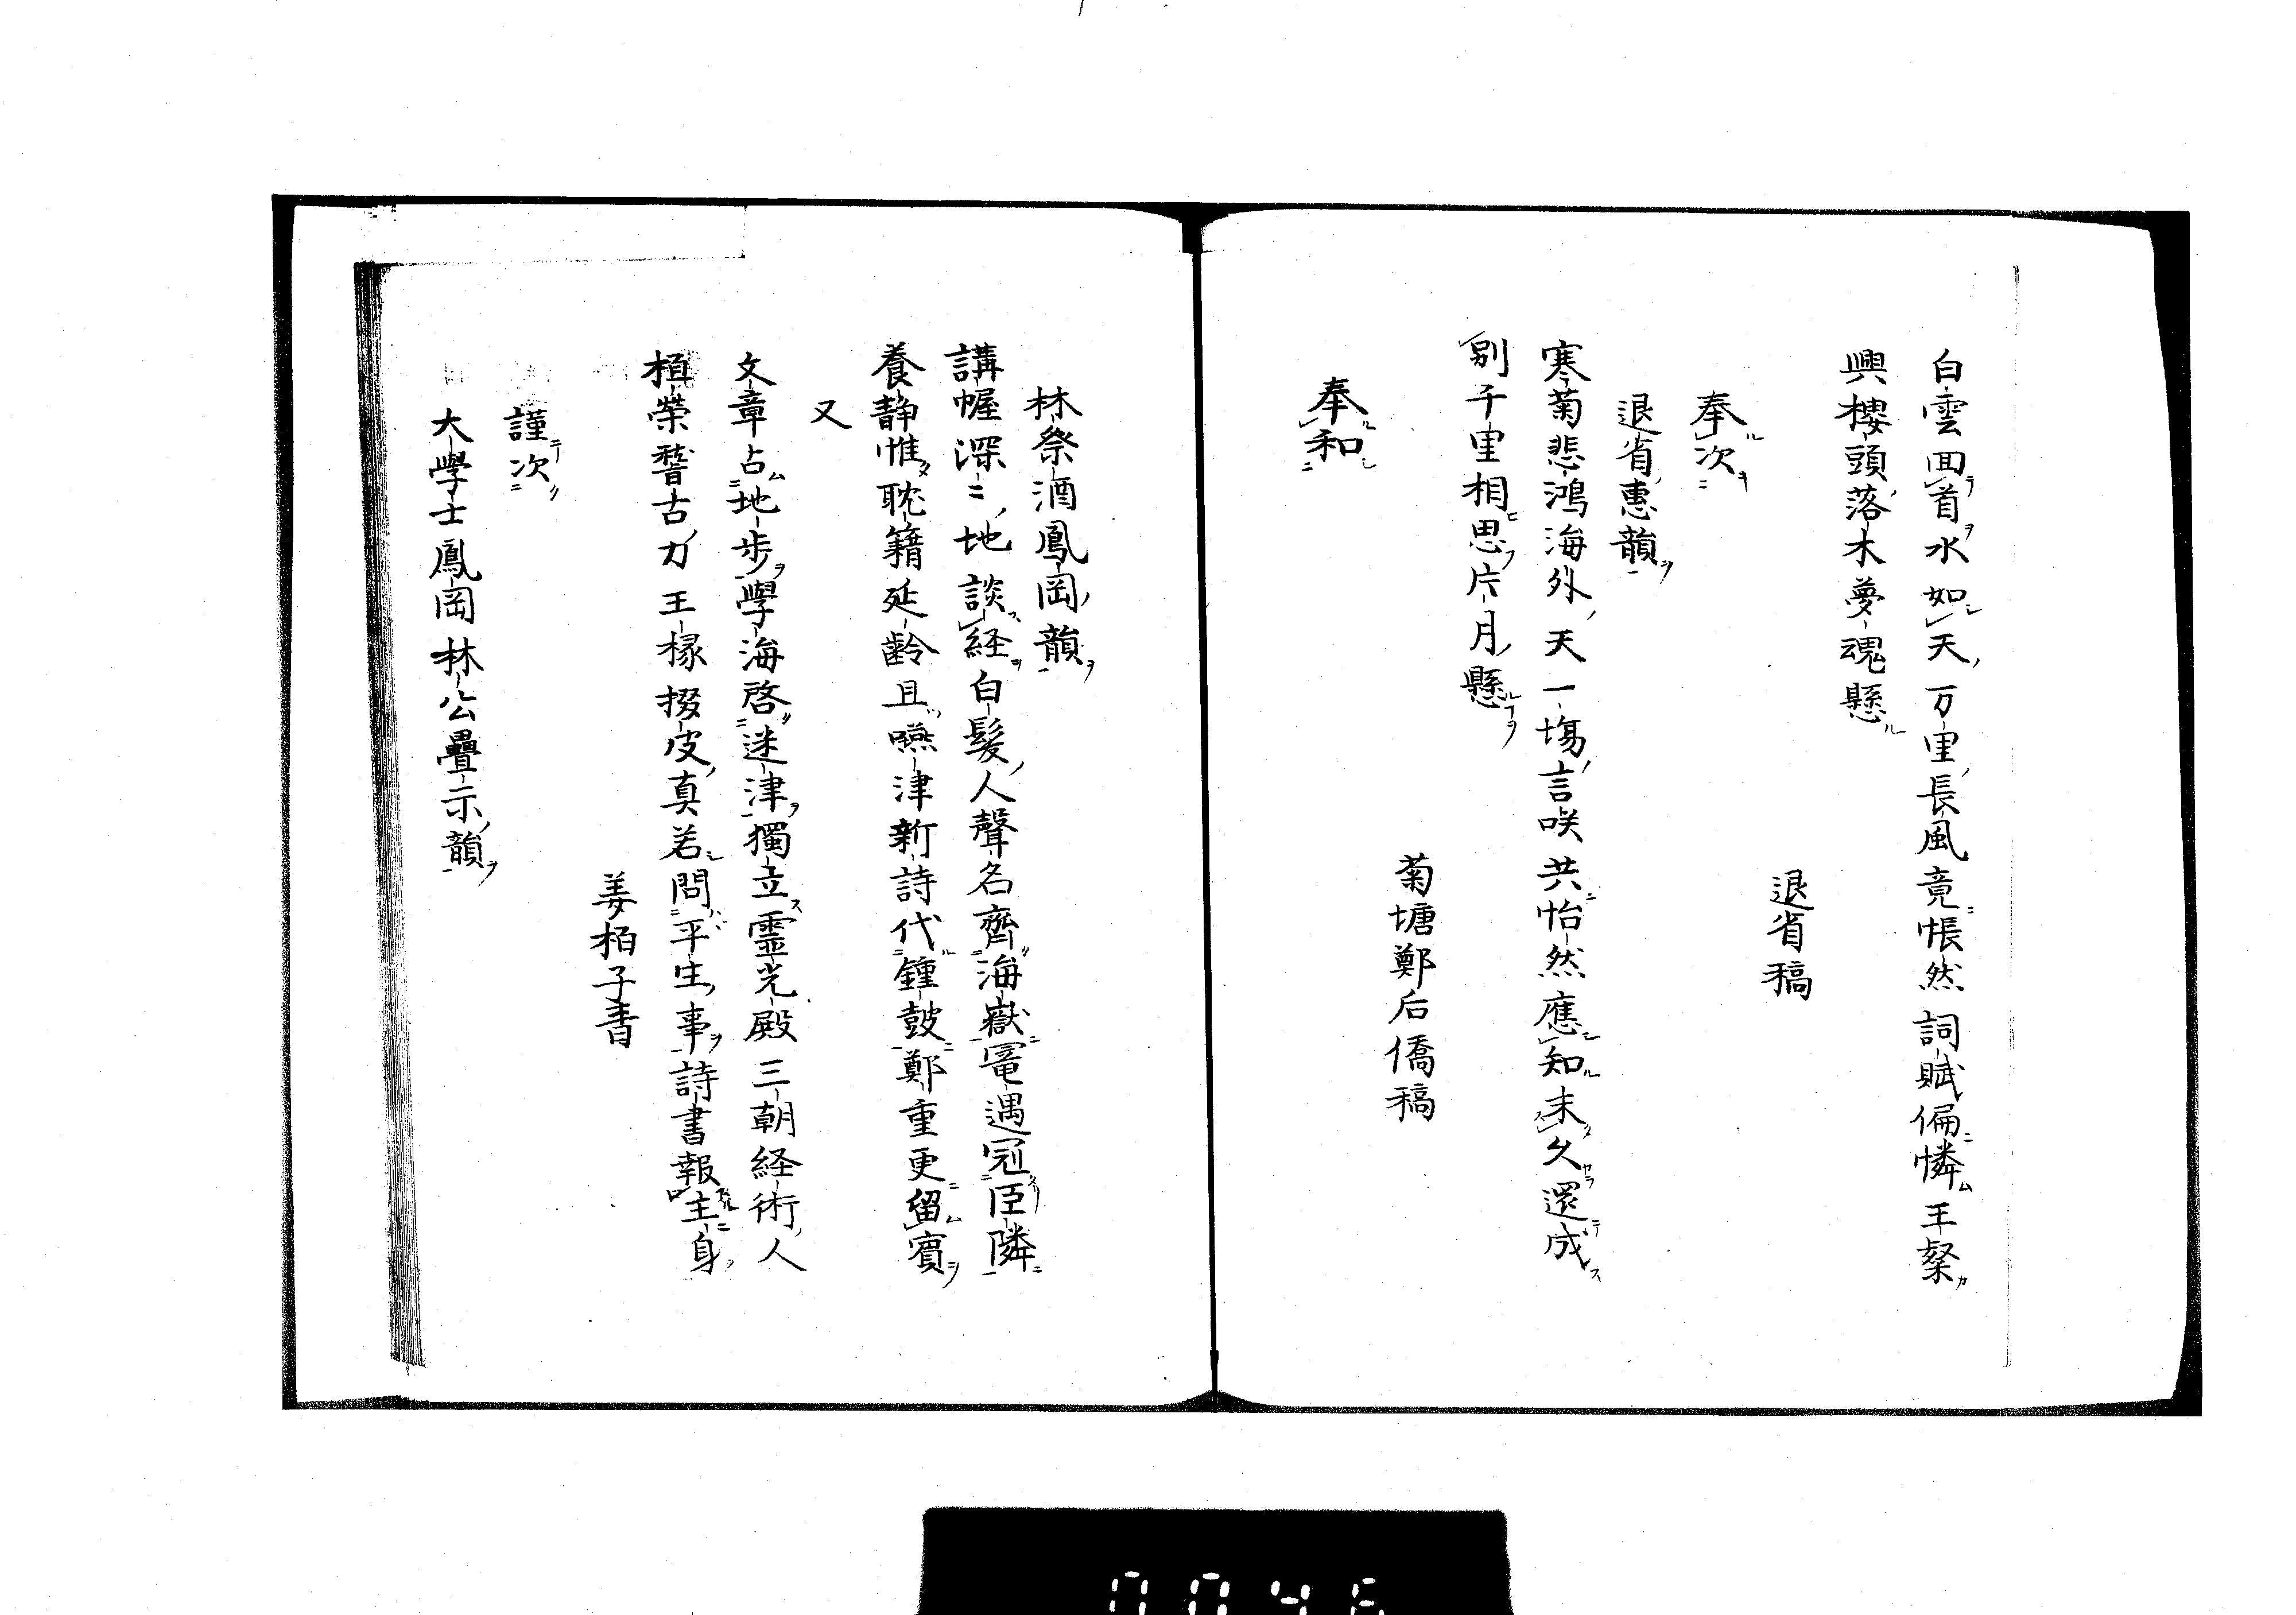 白雲回首水如天万里長風竟悵然詞賦偏憐王粲
興樓頭落木夢魂懸
退省稿
奉次
退省惠韻
寒菊悲鴻海外天一場言咲共怡然應知未久還成
別千里相思片月懸
菊塘鄭后僑稿
奉和
林祭酒鳳岡韻
講幄深〻地談経白髮人聲名齊海嶽寵遇冠臣隣
養静惟耽籍延齢且嚥津新詩代鍾鼓鄭重更留賓
又
文章占地步學海啓迷津獨立霊光殿三朝経術人
桓榮稽古力王椽掇皮真若問平生事詩書報主身
姜栢子青
謹次
大學士鳳岡林公疊示韻
0046